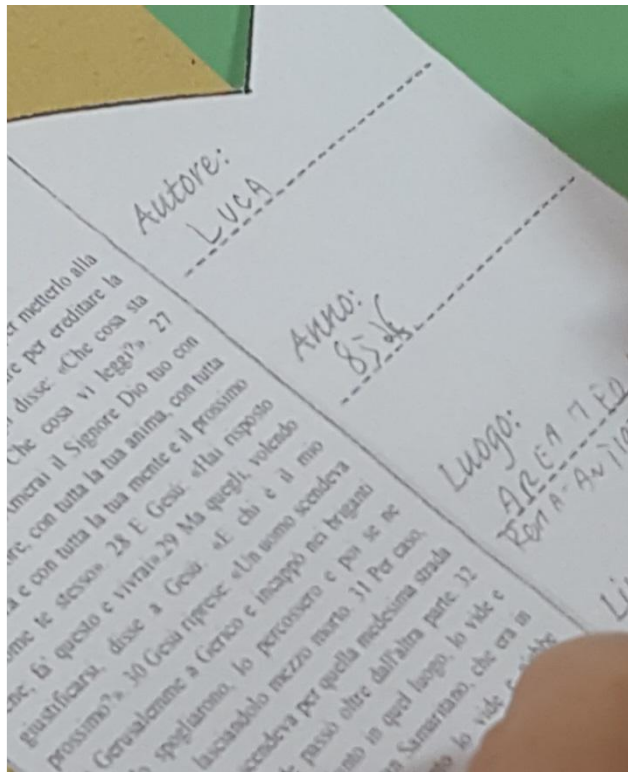 Autore:
LUCA
Anno:
85 d.C.
Luogo:
AREA MED
ROMA-ANTIO
Li
er metterlo alla
re per ereditare la
disse: «Che cosa sta
Che cosa vi leggi?». 27
Amerai il Signore Dio tuo con
re, con tutta la tua anima, con tutta
a e con tutta la tua mente e il prossimo
me te stesso». 28 E Gesú: «Hai risposto
ne, fa' questo e vivrai» 29 Ma quegli, volendo
giustificarsi, disse a Gesú: «E chi è il mio
prossimo?». 30 Gesú riprese: «Un uomo scendeva
Gerusalemme a Gerico e incappò nei briganti
spogliarono, lo percossero e poi se ne
lasciandolo mezzo morto. 31 Per caso,
scendeva per quella medesima strada
passò oltre dall'altra parte. 32
unto in quel luogo, lo vide e
n Samaritano, che era in
to lo vide e